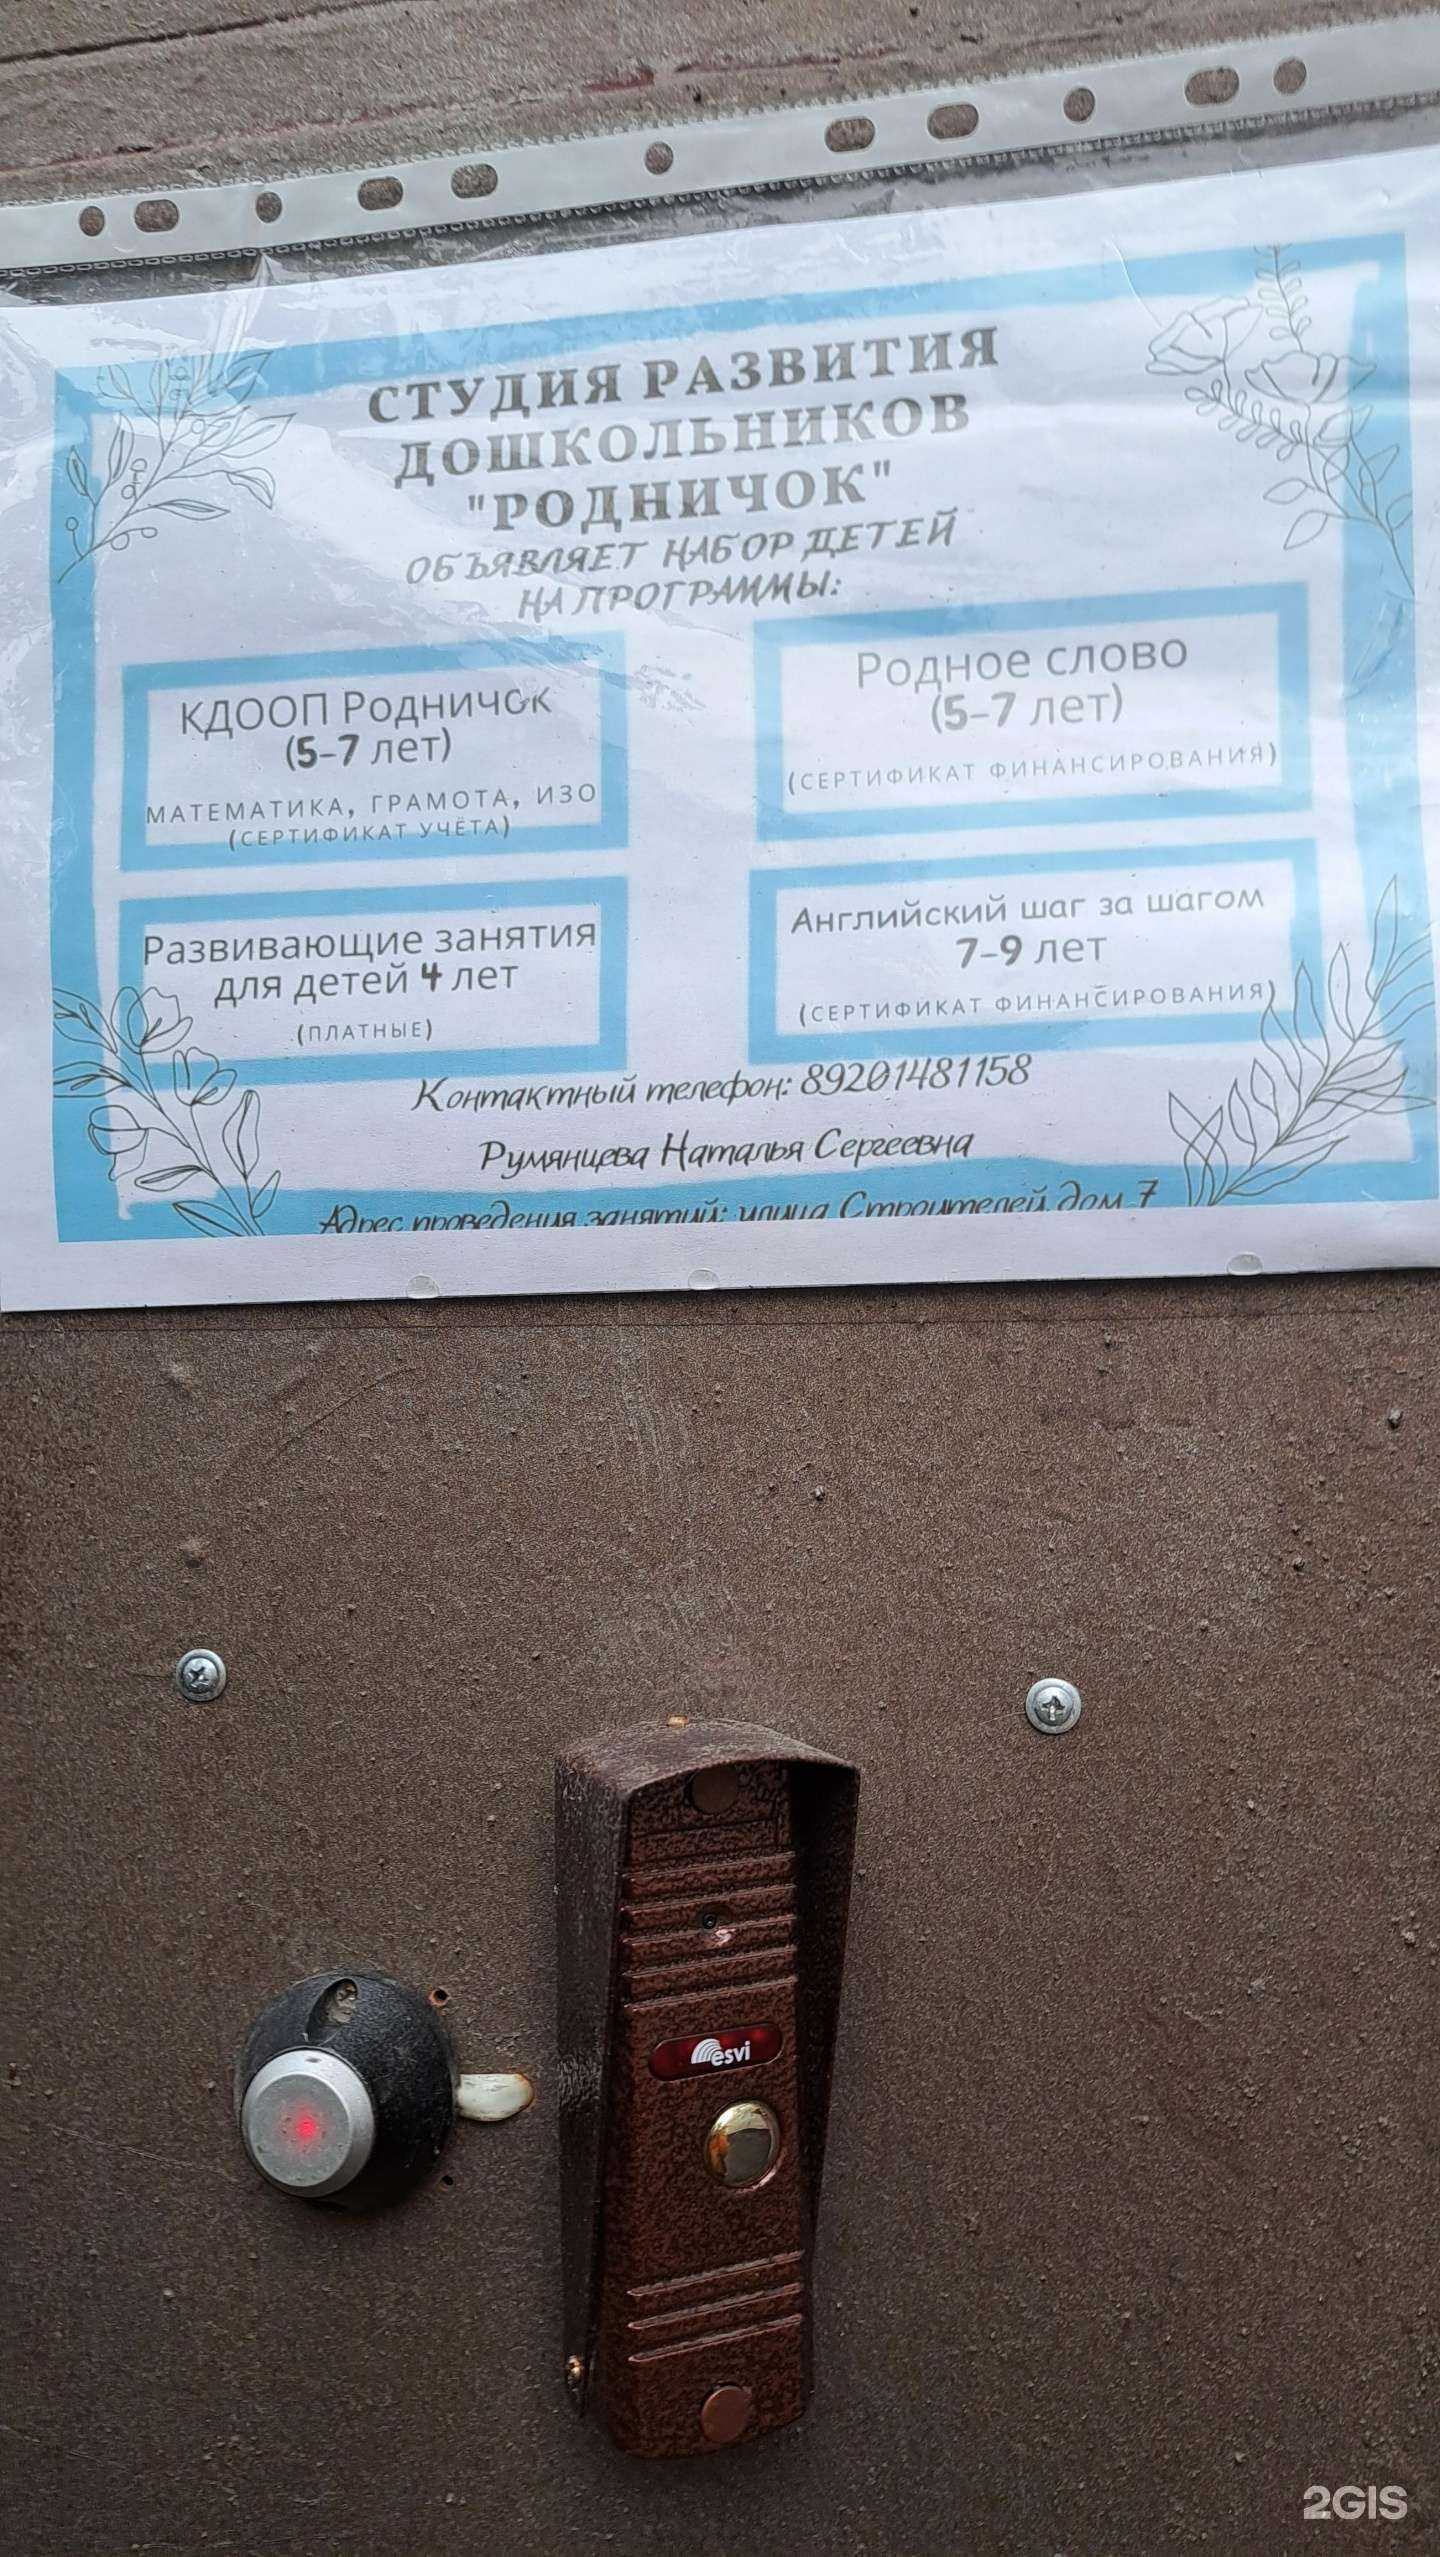 СТУДИЯ РАЗВИТИЯ
ДОШКОЛЬНИКОВ
"РОДНИЧОК"
ОБЪЯВЛЯЕТ НАБОР ДЕТЕЙ
НА ПРОГРАММЫ:
КДООП Родничок
(5-7 лет)
МАТЕМАТИКА, ГРАМОТА, ИЗО
(СЕРТИФИКАТ УЧЁТА)
Родное слово
(5-7 лет)
(СЕРТИФИКАТ ФИНАНСИРОВАНИЯ)
Развивающие занятия
для детей 4 лет
(ПЛАТНЫЕ)
Английский шаг за шагом
7-9 лет
(СЕРТИФИКАТ ФИНАНСИРОВАНИЯ)
Контактный телефон: 89201481158
Румянцева Наталья Сергеевна
Адрес проведения занятий: улица Строителей, дом 7
esvi
2GIS